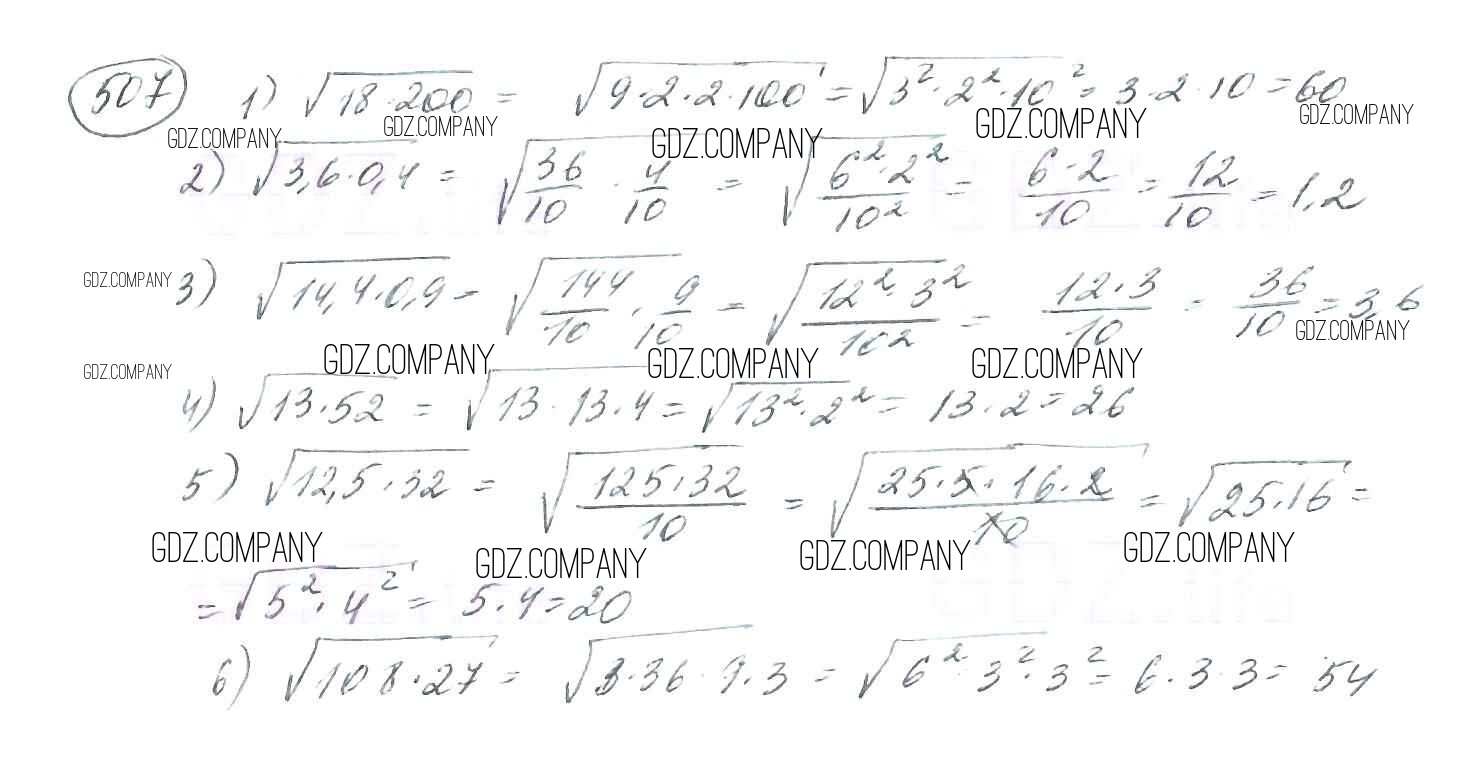 507 1) √18·200 = √9·2·2·100 = √3²·2²·10² = 3·2·10 = 60
GDZ.COMPANY GDZ.COMPANY GDZ.COMPANY GDZ.COMPANY GDZ.COMPANY
2) √3,6·0,4 = √36/10 · 4/10 = √6²·2²/10² = 6·2/10 = 12/10 = 1,2
GDZ.COMPANY 3) √14,4·0,9 = √144/10 · 9/10 = √12²·3²/10² = 12·3/10 = 36/10 = 3,6
GDZ.COMPANY GDZ.COMPANY GDZ.COMPANY GDZ.COMPANY GDZ.COMPANY
4) √13·52 = √13·13·4 = √13²·2² = 13·2 = 26
5) √12,5·32 = √125·32/10 = √25·5·16·2/10 = √25·16 =
GDZ.COMPANY GDZ.COMPANY GDZ.COMPANY GDZ.COMPANY
= √5²·4² = 5·4 = 20
6) √108·27 = √3·36·9·3 = √6²·3²·3² = 6·3·3 = 54